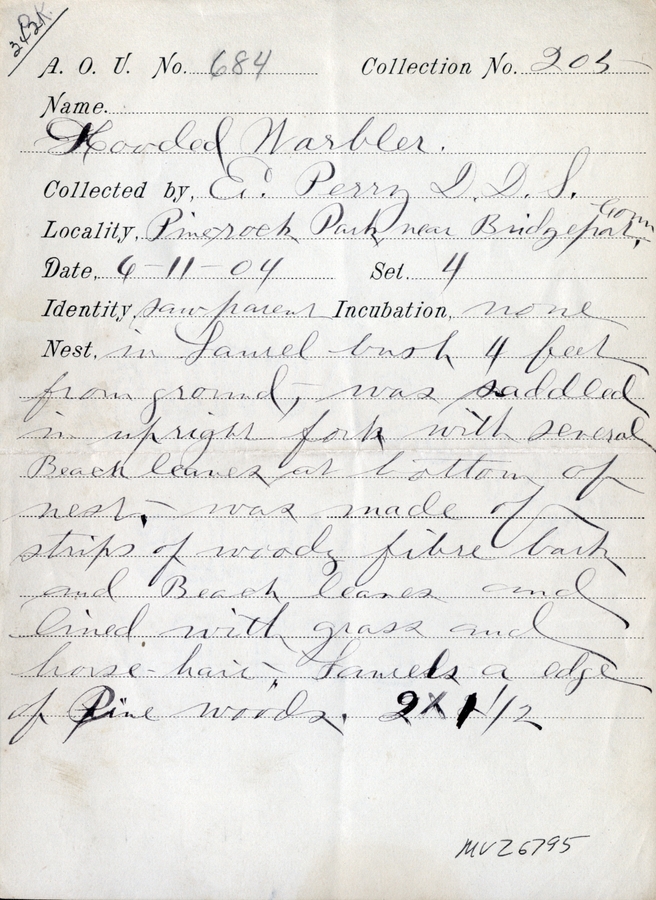 A. O. U. No. 684 Collection No. 205
Name.
Hooded Warbler.
Collected by, E. Perry D.D.S.
Locality, Pinerock Park, near Bridgeport, Conn
Date, 6-11-04 Set. 4
Identity, saw parent Incubation, none
Nest, in Laurel bush 4 feet
from ground, was saddled
in upright fork with several
Beach leaves at bottom of
nest, - was made of
strips of woody fibre bark
and Beach leaves and
lined with grass and
horse-hair, Laurels a edge
of Pine woods. 2 X 1 1/2
MVZ 6795